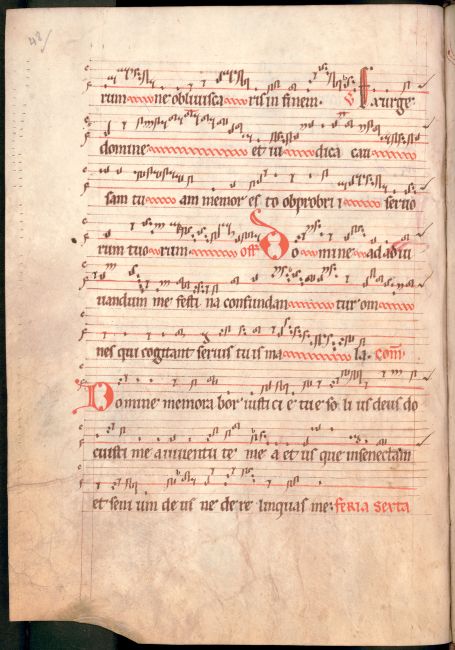 42
rum ne obliuisca ris in finem. V. Exurge
domine et iu dica cau
sam tu am memor es to obprobri i seruo
rum tuo rum off Do mine ad adiu
uandum me festi na confundan tur om
nes qui cogitant seruis tuis ma la. com
Domine memora bor iusti ci e tue so li us deus do
cuisti me a iuuentu te me a et us que in senectam
et seni um de us ne de re linquas me. feria sexta